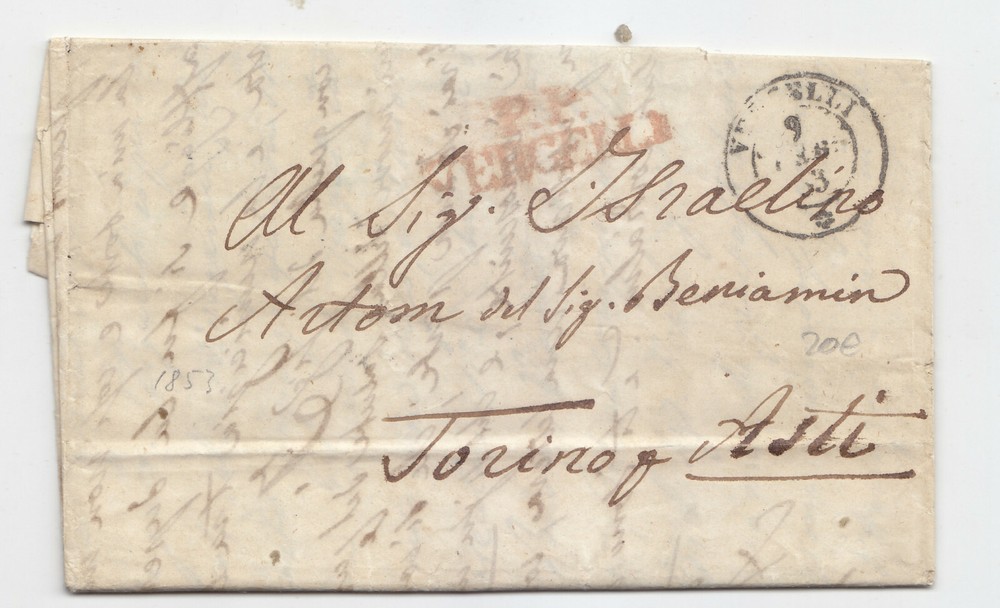 P.P.
VERCELLI
VERCELLI
9
53
Al Sig. Israelino
Artom del Sig. Beniamin
20€
1853
Torino p Asti